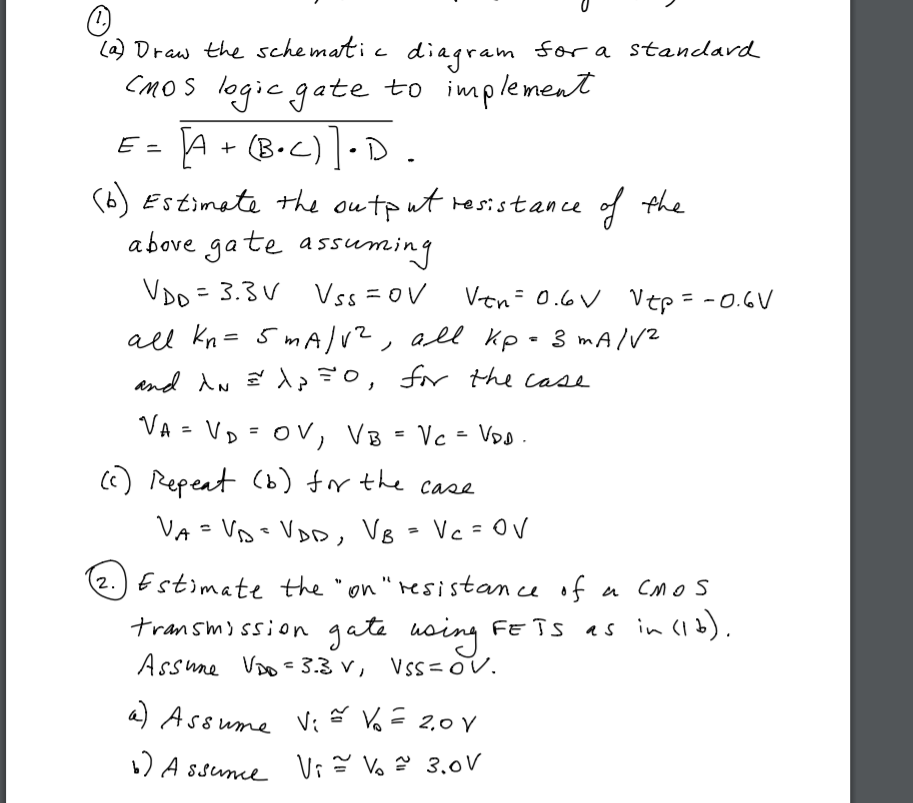 1.
(a) Draw the schematic diagram for a standard
CMOS logic gate to implement
E = \overline{[A + (B·C)]·D} .
(b) Estimate the output resistance of the
above gate assuming
V_DD = 3.3V V_SS = 0V V_tn = 0.6V V_tp = -0.6V
all k_n = 5 mA/V², all k_p = 3 mA/V²
and λ_N ≅ λ_P ≅ 0, for the case
V_A = V_D = 0V, V_B = V_C = V_DD.
(c) Repeat (b) for the case
V_A = V_D = V_DD, V_B = V_C = 0V
2. Estimate the "on" resistance of a CMOS
transmission gate using FETS as in (1b).
Assume V_DD = 3.3 V, V_SS = 0V.
a) Assume V_i ≅ V_o ≅ 2.0 V
b) Assume V_i ≅ V_o ≅ 3.0V